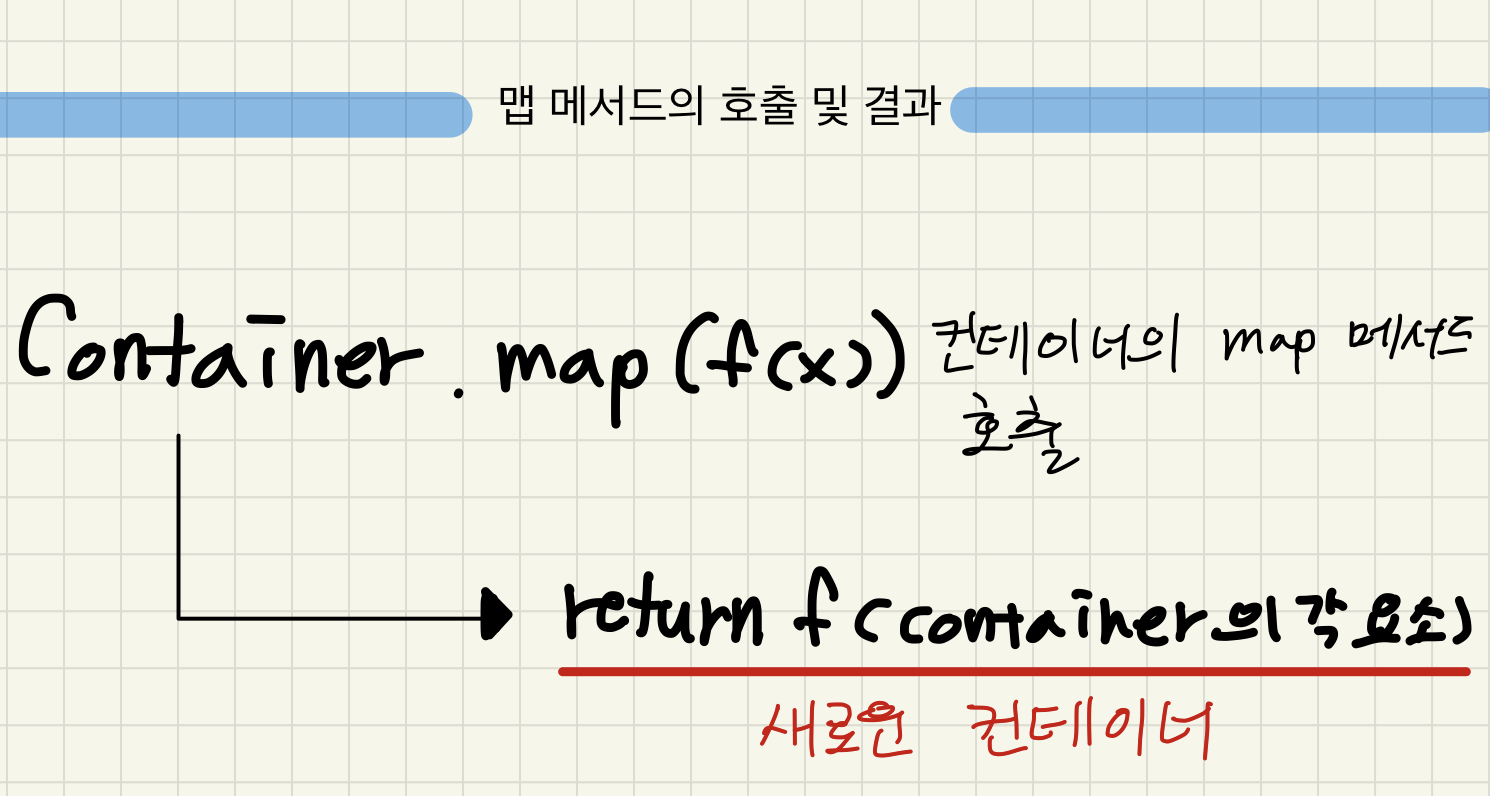 맵 메서드의 호출 및 결과
Container . map (f(x)) 컨테이너의 map 메서드
호출
return f (container의 각 요소)
새로운 컨테이너